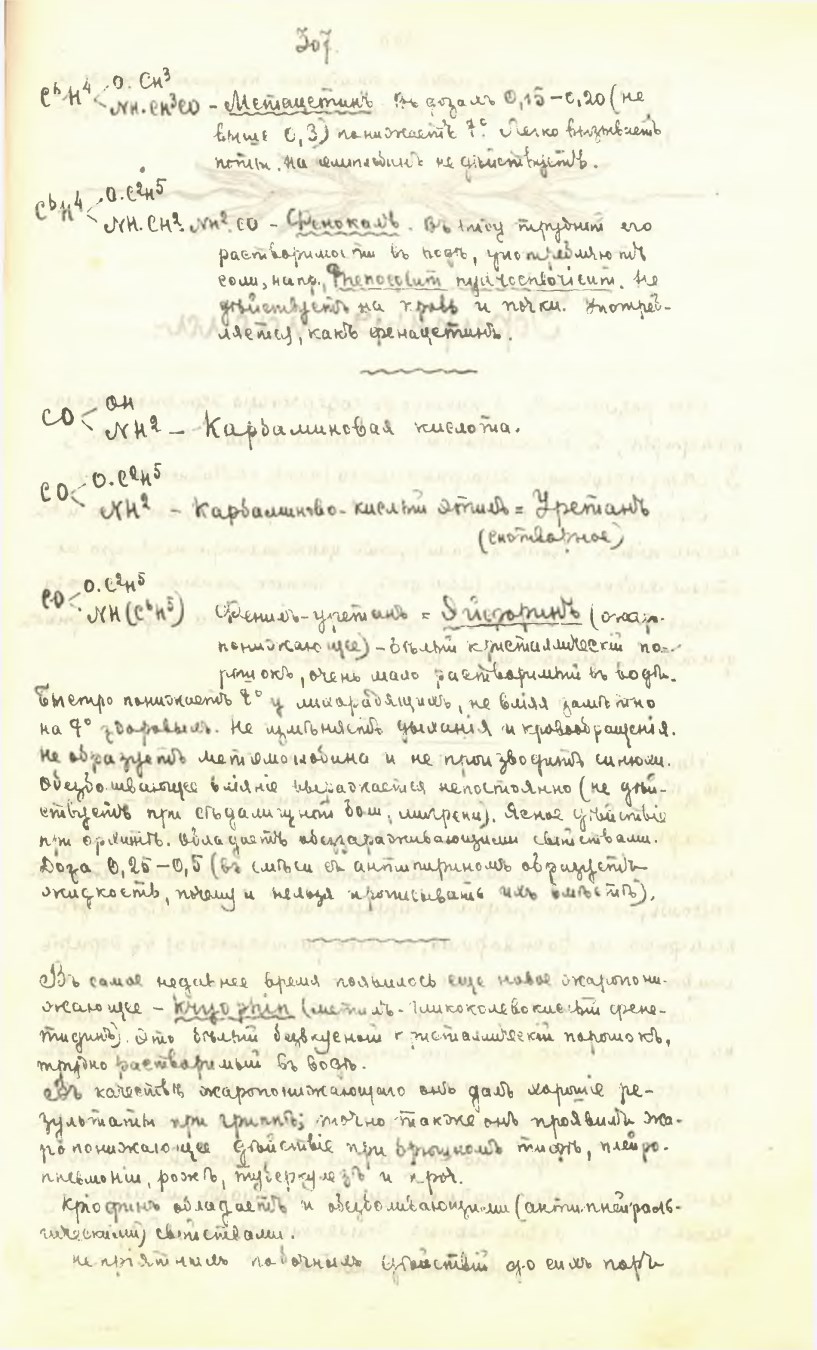 307.
C⁶H⁴ < O. CH³
NH. CH³CO - Метацетинъ. Въ дозахъ 0,15-0,20 (не
выше 0,3) понижаетъ t°. Легко вызываетъ
поты. На не дѣйствуетъ.
C⁶H⁴ < O. C²H⁵
NH. CH². NH². CO - Фенокалъ. Въ виду трудной его
растворимости въ водѣ, употребляютъ
соли, напр., Phenocolum hydrochloricum. Не
дѣйствуетъ на кровь и почки. Употреб-
ляется, какъ фенацетинъ.
CO < OH
NH² - Карбаминовая кислота.
CO < O. C²H⁵
NH² - Карбаминово-кислый этилъ = Уретанъ
(снотворное)
CO < O. C²H⁵
NH (C⁶H⁵) Фенилъ-уретанъ = Эйфоринъ (жаро-
понижающее) - бѣлый кристаллическій по-
рошокъ, очень мало растворимый въ водѣ.
Быстро понижаетъ t° у лихорадящихъ, не вліяя замѣтно
на t° здоровыхъ. Не измѣняетъ дыханія и кровообращенія.
Не образуетъ метэмоглобина и не производитъ синюхи.
Обезболивающее вліяніе выражается непостоянно (не дѣй-
ствуетъ при сѣдалищной боли, мигрени). Ясное дѣйствіе
при орхитѣ. Обладаетъ обеззараживающими свойствами.
Доза 0,25-0,5 (въ смѣси съ антипириномъ образуетъ
жидкость, почему и нельзя прописывать ихъ вмѣстѣ).
Въ самое недавнее время появилось еще новое жаропони-
жающее - Kryophin (метилъ-гликоколевокислый фене-
тидинъ). Это бѣлый безвкусный кристаллическій порошокъ,
трудно растворимый въ водѣ.
Въ качествѣ жаропонижающаго онъ далъ хорошіе ре-
зультаты при гриппѣ; точно также онъ проявилъ жа-
ропонижающее дѣйствіе при брюшномъ тифѣ, плейро-
пневмоніи, рожѣ, туберкулезѣ и проч.
Кріофинъ обладаетъ и обезболивающими (антинейраль-
гическими) свойствами.
Непріятныхъ побочныхъ дѣйствій до сихъ поръ